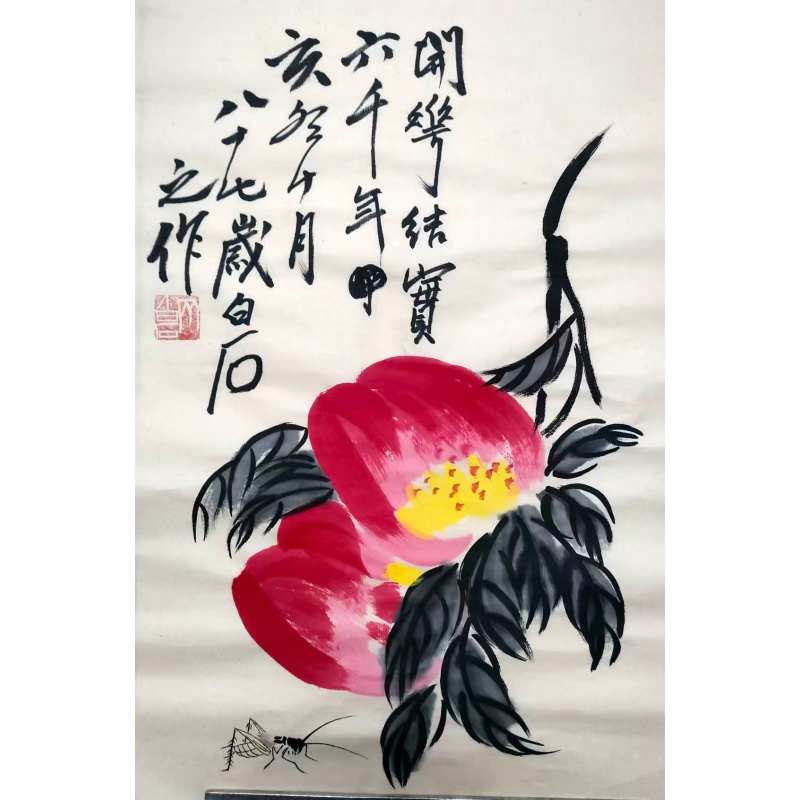 開華結實
六千年
亥冬十月
八十七歲白石
之作